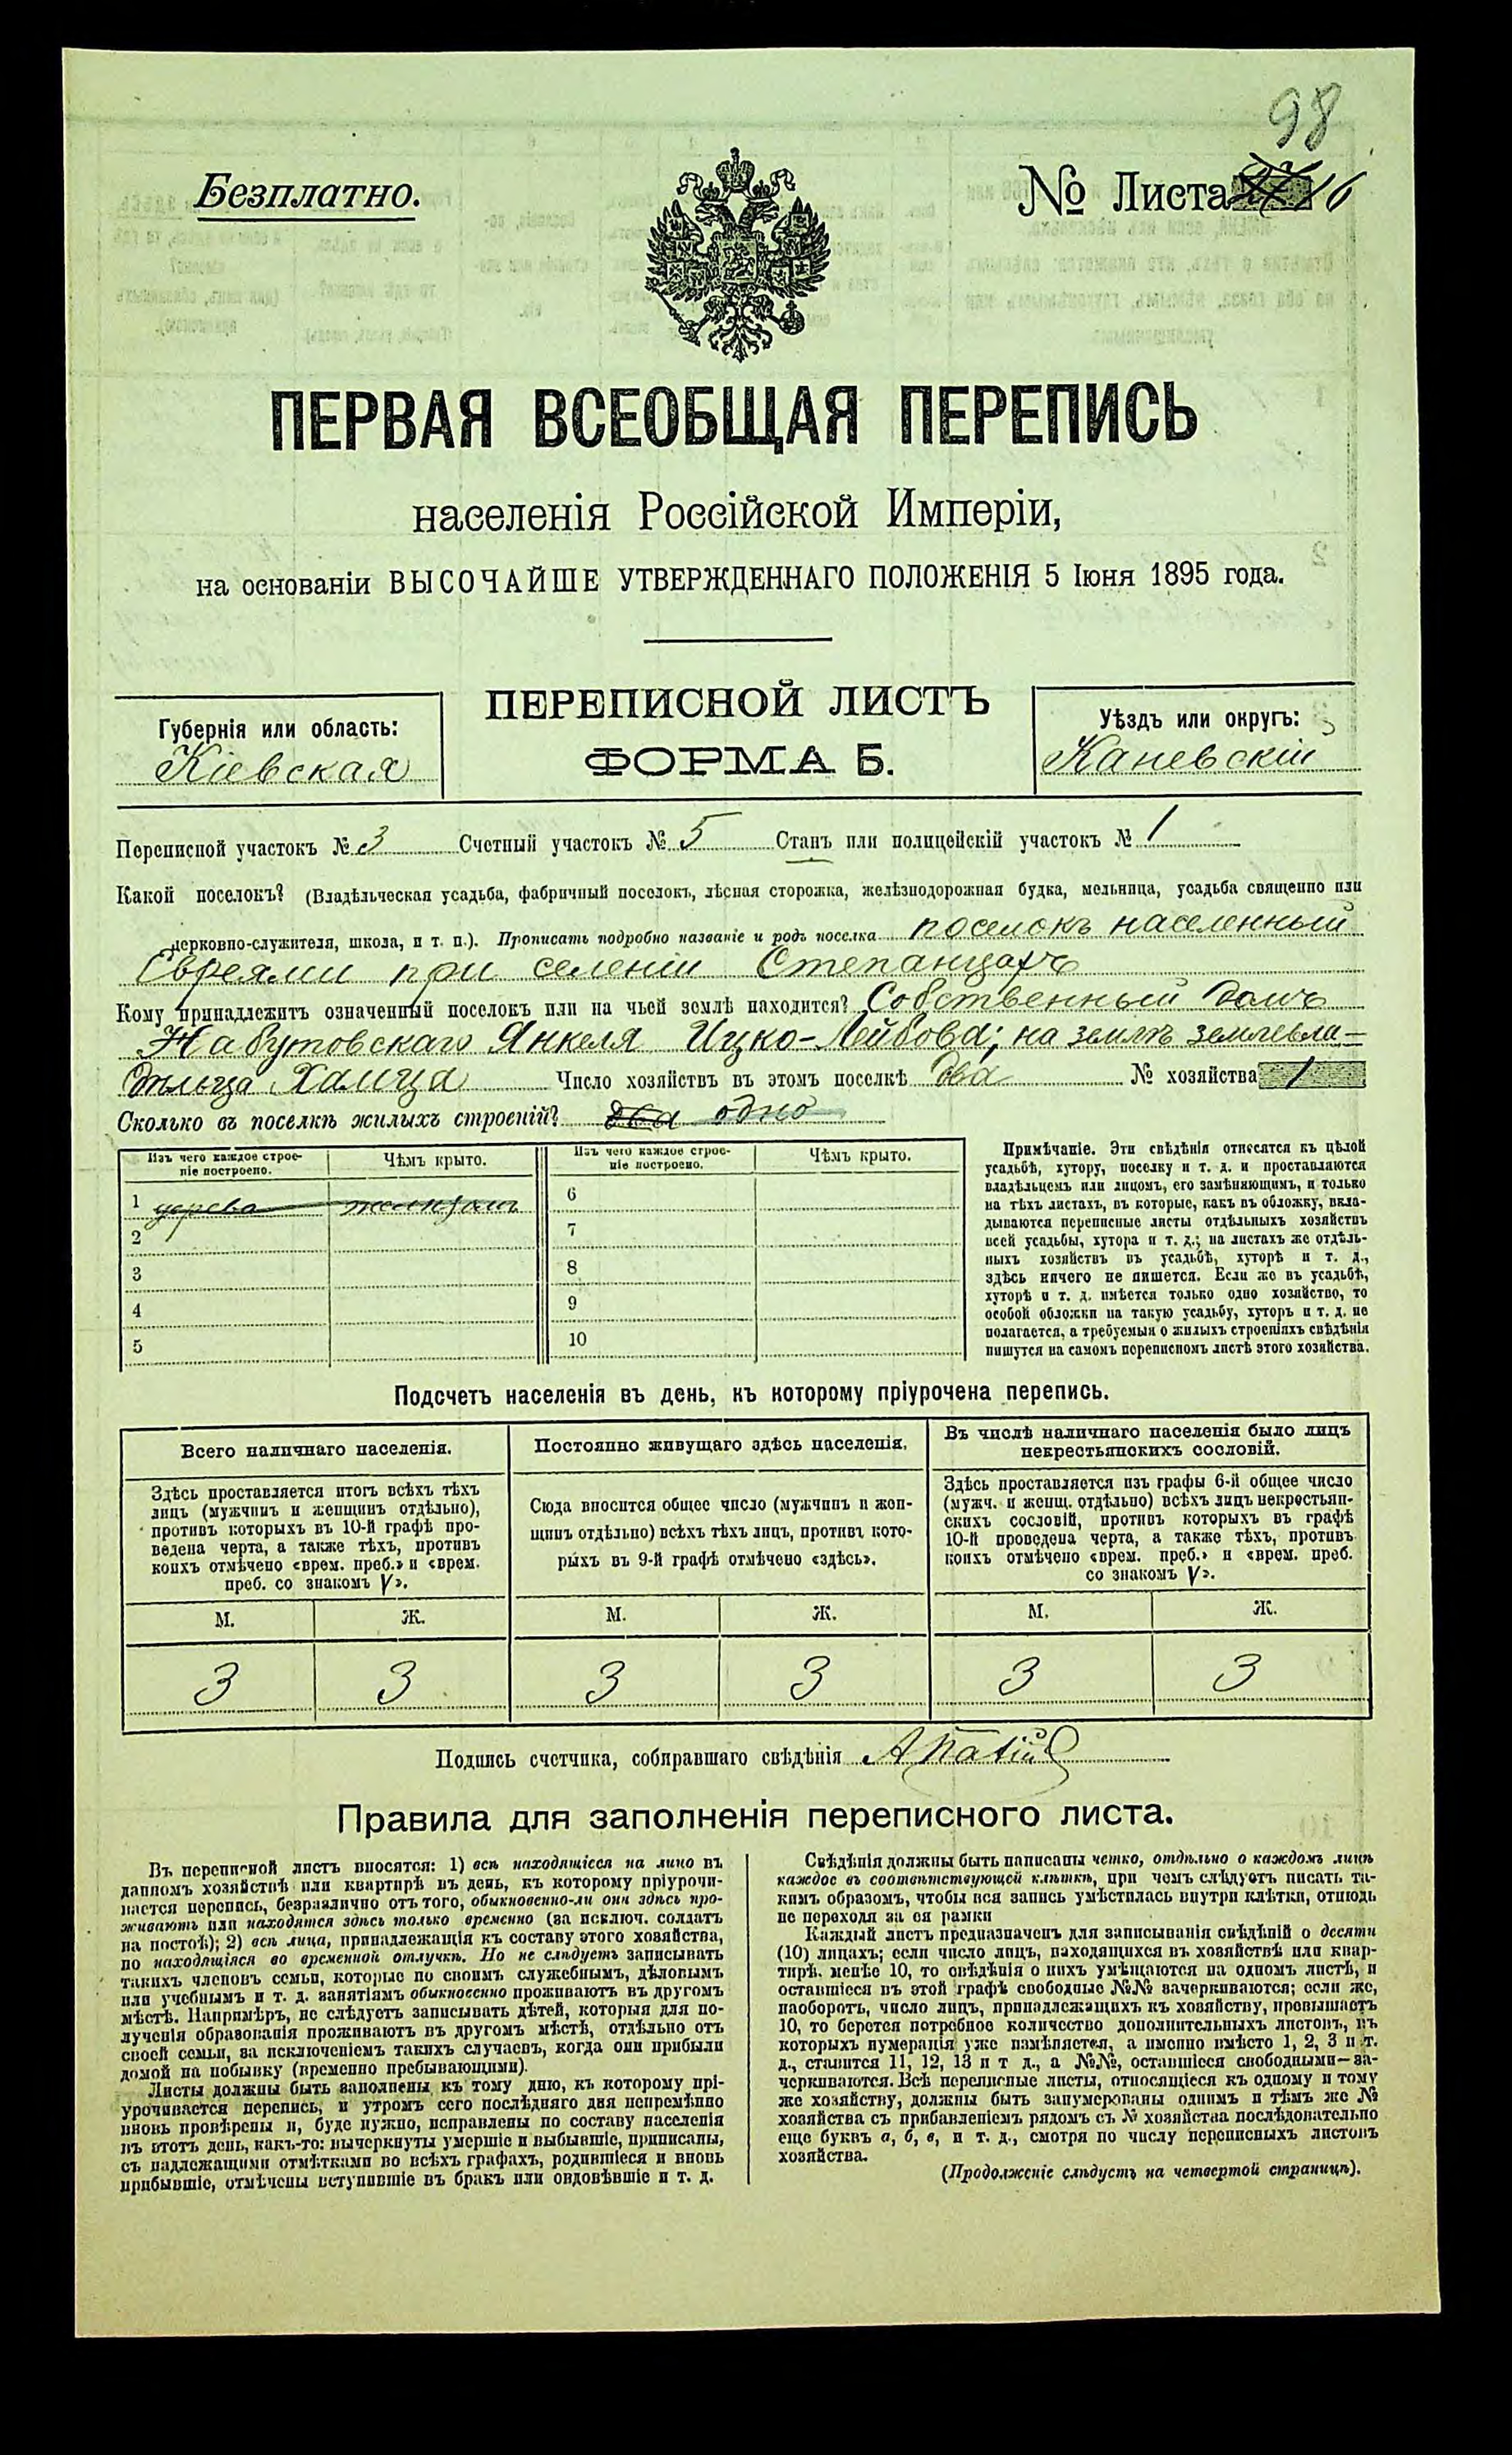 98
Безплатно.
№ Листа 16
ПЕРВАЯ ВСЕОБЩАЯ ПЕРЕПИСЬ
населенія Россійской Имперіи,
на основаніи ВЫСОЧАЙШЕ УТВЕРЖДЕННАГО ПОЛОЖЕНІЯ 5 Іюня 1895 года.
ПЕРЕПИСНОЙ ЛИСТЪ
ФОРМА Б.
Губернія или область:
Кіевская
Уѣздъ или округъ:
Каневскій
Переписной участокъ № 3 Счетный участокъ № 5 Станъ или полицейскій участокъ № 1
Какой поселокъ? (Владѣльческая усадьба, фабричный поселокъ, лѣсная сторожка, желѣзнодорожная будка, мельница, усадьба священно или
церковно-служителя, школа, и т. п.). Прописать подробно названіе и родъ поселка поселокъ населенный
Евреями при селеніи Степанцахъ
Кому принадлежитъ означенный поселокъ или на чьей землѣ находится? Собственный домъ
Набутовскаго Янкеля Ицко-Лейбова; на землѣ землевла-
дѣльца Хамца Число хозяйствъ въ этомъ поселкѣ два № хозяйства 1
Сколько въ поселкѣ жилыхъ строеній? два одно
Изъ чего каждое строе-
ніе построено.
Чѣмъ крыто.
Изъ чего каждое строе-
ніе построено.
Чѣмъ крыто.
1 дерева
6
2
7
3
8
4
9
5
10
Примѣчаніе. Эти свѣдѣнія относятся къ цѣлой
усадьбѣ, хутору, поселку и т. д. и проставляются
владѣльцемъ или лицомъ, его замѣняющимъ, и только
на тѣхъ листахъ, въ которые, какъ въ обложку, вкла-
дываются переписные листы отдѣльныхъ хозяйствъ
всей усадьбы, хутора и т. д.; на листахъ же отдѣль-
ныхъ хозяйствъ въ усадьбѣ, хуторѣ и т. д.,
здѣсь ничего не пишется. Если же въ усадьбѣ,
хуторѣ и т. д. имѣется только одно хозяйство, то
особой обложки на такую усадьбу, хуторъ и т. д. не
полагается, а требуемыя о жилыхъ строеніяхъ свѣдѣнія
пишутся на самомъ переписномъ листѣ этого хозяйства.
Подсчетъ населенія въ день, къ которому пріурочена перепись.
Всего наличнаго населенія.
Здѣсь проставляется итогъ всѣхъ тѣхъ
лицъ (мужчинъ и женщинъ отдѣльно),
противъ которыхъ въ 10-й графѣ про-
ведена черта, а также тѣхъ, противъ
коихъ отмѣчено «врем. преб.» и «врем.
преб. со знакомъ V».
М. Ж.
3 3
Постоянно живущаго здѣсь населенія.
Сюда вносится общее число (мужчинъ и жен-
щинъ отдѣльно) всѣхъ тѣхъ лицъ, противъ кото-
рыхъ въ 9-й графѣ отмѣчено «здѣсь».
М. Ж.
3 3
Въ числѣ наличнаго населенія было лицъ
некрестьянскихъ сословій.
Здѣсь проставляется изъ графы 6-й общее число
(мужч. и женщ. отдѣльно) всѣхъ лицъ некрестьян-
скихъ сословій, противъ которыхъ въ графѣ
10-й проведена черта, а также тѣхъ, противъ
коихъ отмѣчено «врем. преб.» и «врем. преб.
со знакомъ V».
М. Ж.
3 3
Подпись счетчика, собиравшаго свѣдѣнія
Правила для заполненія переписного листа.
Въ переписной листъ вносятся: 1) всѣ находящіеся на лицо въ
данномъ хозяйствѣ или квартирѣ въ день, къ которому пріурочи-
вается перепись, безразлично отъ того, обыкновенно-ли они здѣсь про-
живаютъ или находятся здѣсь только временно (за исключ. солдатъ
на постоѣ); 2) всѣ лица, принадлежащія къ составу этого хозяйства,
но находящіяся во временной отлучкѣ. Но не слѣдуетъ записывать
такихъ членовъ семьи, которые по своимъ служебнымъ, дѣловымъ
или учебнымъ и т. д. занятіямъ обыкновенно проживаютъ въ другомъ
мѣстѣ. Напримѣръ, не слѣдуетъ записывать дѣтей, которыя для по-
лученія образованія проживаютъ въ другомъ мѣстѣ, отдѣльно отъ
своей семьи, за исключеніемъ такихъ случаевъ, когда они прибыли
домой на побывку (временно пребывающими).
Листы должны быть заполнены къ тому дню, къ которому прі-
урочивается перепись, и утромъ сего послѣдняго дня непремѣнно
вновь провѣрены и, буде нужно, исправлены по составу населенія
въ этотъ день, какъ-то: вычеркнуты умершіе и выбывшіе, приписаны,
съ надлежащими отмѣтками во всѣхъ графахъ, родившіеся и вновь
прибывшіе, отмѣчены вступившіе въ бракъ или овдовѣвшіе и т. д.
Свѣдѣнія должны быть написаны четко, отдѣльно о каждомъ лицѣ
каждое въ соотвѣтствующей клѣткѣ, при чемъ слѣдуетъ писать та-
кимъ образомъ, чтобы вся запись умѣстилась внутри клѣтки, отнюдь
не переходя за ея рамки
Каждый листъ предназначенъ для записыванія свѣдѣній о десяти
(10) лицахъ; если число лицъ, находящихся въ хозяйствѣ или квар-
тирѣ, менѣе 10, то свѣдѣнія о нихъ умѣщаются на одномъ листѣ, и
оставшіеся въ этой графѣ свободные №№ зачеркиваются; если же,
наоборотъ, число лицъ, принадлежащихъ къ хозяйству, превышаетъ
10, то берется потребное количество дополнительныхъ листовъ, въ
которыхъ нумерація уже измѣняется, а именно вмѣсто 1, 2, 3 и т.
д., ставится 11, 12, 13 и т д., а №№, оставшіеся свободными—за-
черкиваются. Всѣ переписные листы, относящіеся къ одному и тому
же хозяйству, должны быть занумерованы однимъ и тѣмъ же №
хозяйства съ прибавленіемъ рядомъ съ № хозяйства послѣдовательно
еще буквъ а, б, в, и т. д., смотря по числу переписныхъ листовъ
хозяйства.
(Продолженіе слѣдуетъ на четвертой страницѣ).